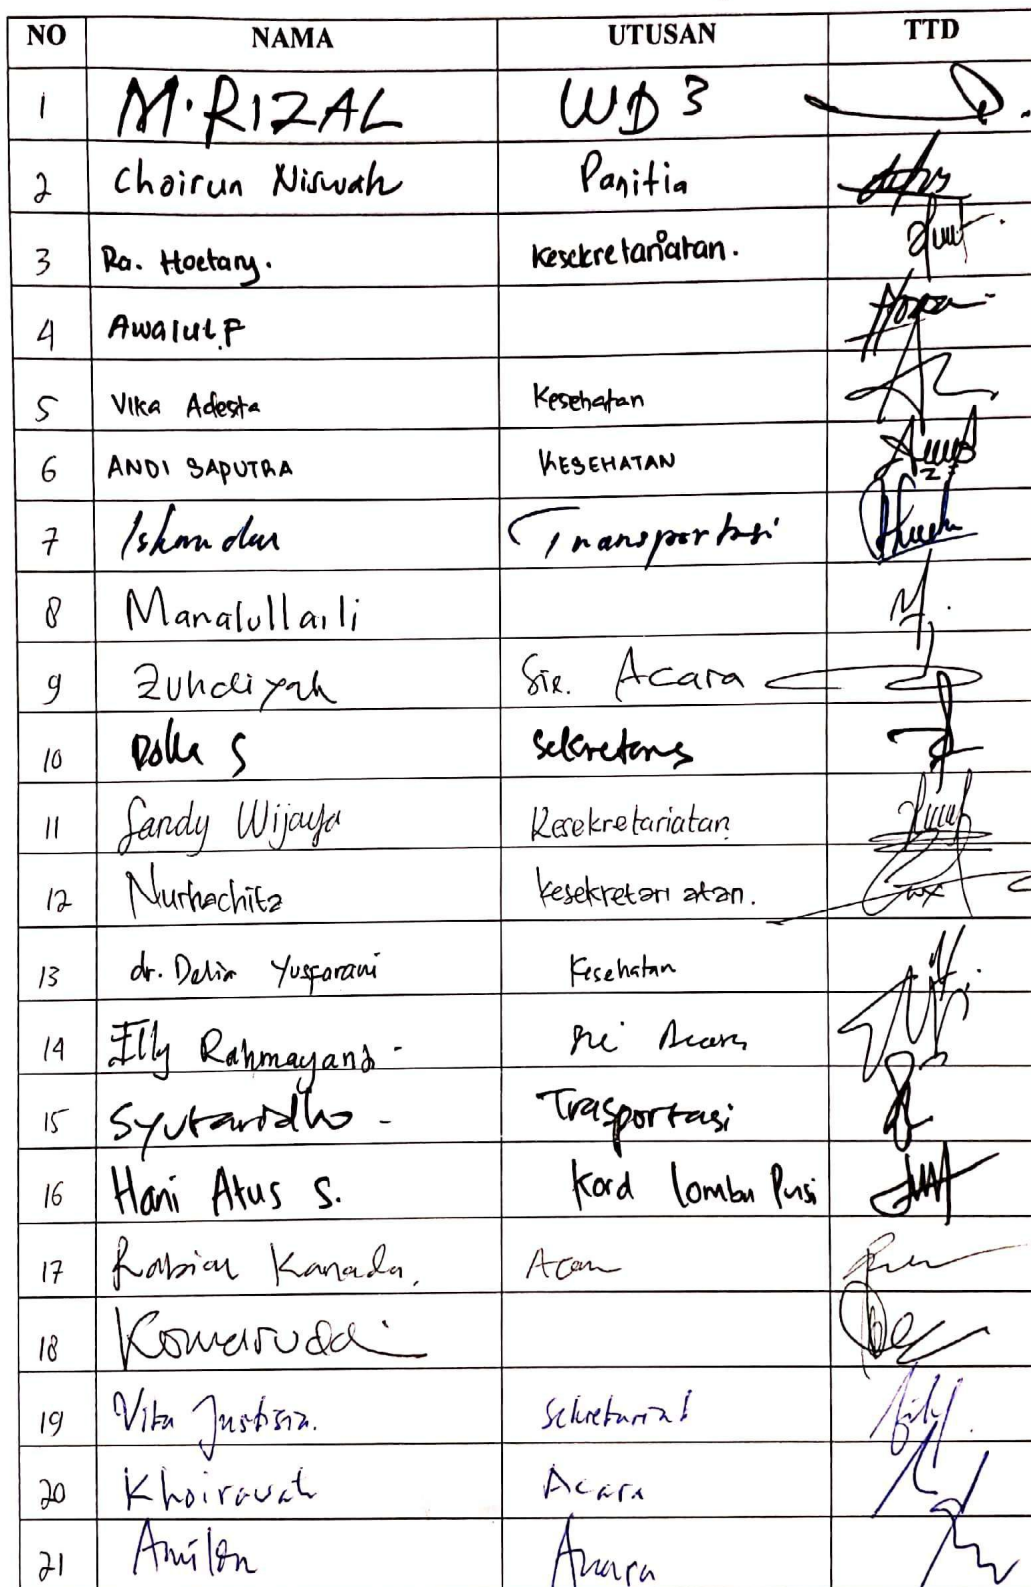 NO NAMA UTUSAN TTD
1 M. RIZAL WD 3
2 Choirun Niswah Panitia
3 Ra. Hoetary. Kesekretariatan.
4 Awalul.F
5 Vika Adesta Kesehatan
6 ANDI SAPUTRA KESEHATAN
7 Iskandar Transportasi
8 Manalullaili
9 Zuhdiyah Sie. Acara
10 S Sekretaris
11 Sandy Wijaya Kesekretariatan
12 Nurhachita Kesekretariatan.
13 dr. Delia Yusfarani Kesehatan
14 Elly Rahmayana - Sie Acara
15 Syutaridho - Trasportasi
16 Hani Atus S. Kord lomba Puisi
17 Rabial Kanada,
18 Komaruddi
19 Vita Justisia. Sekretariat
20 Acara
21